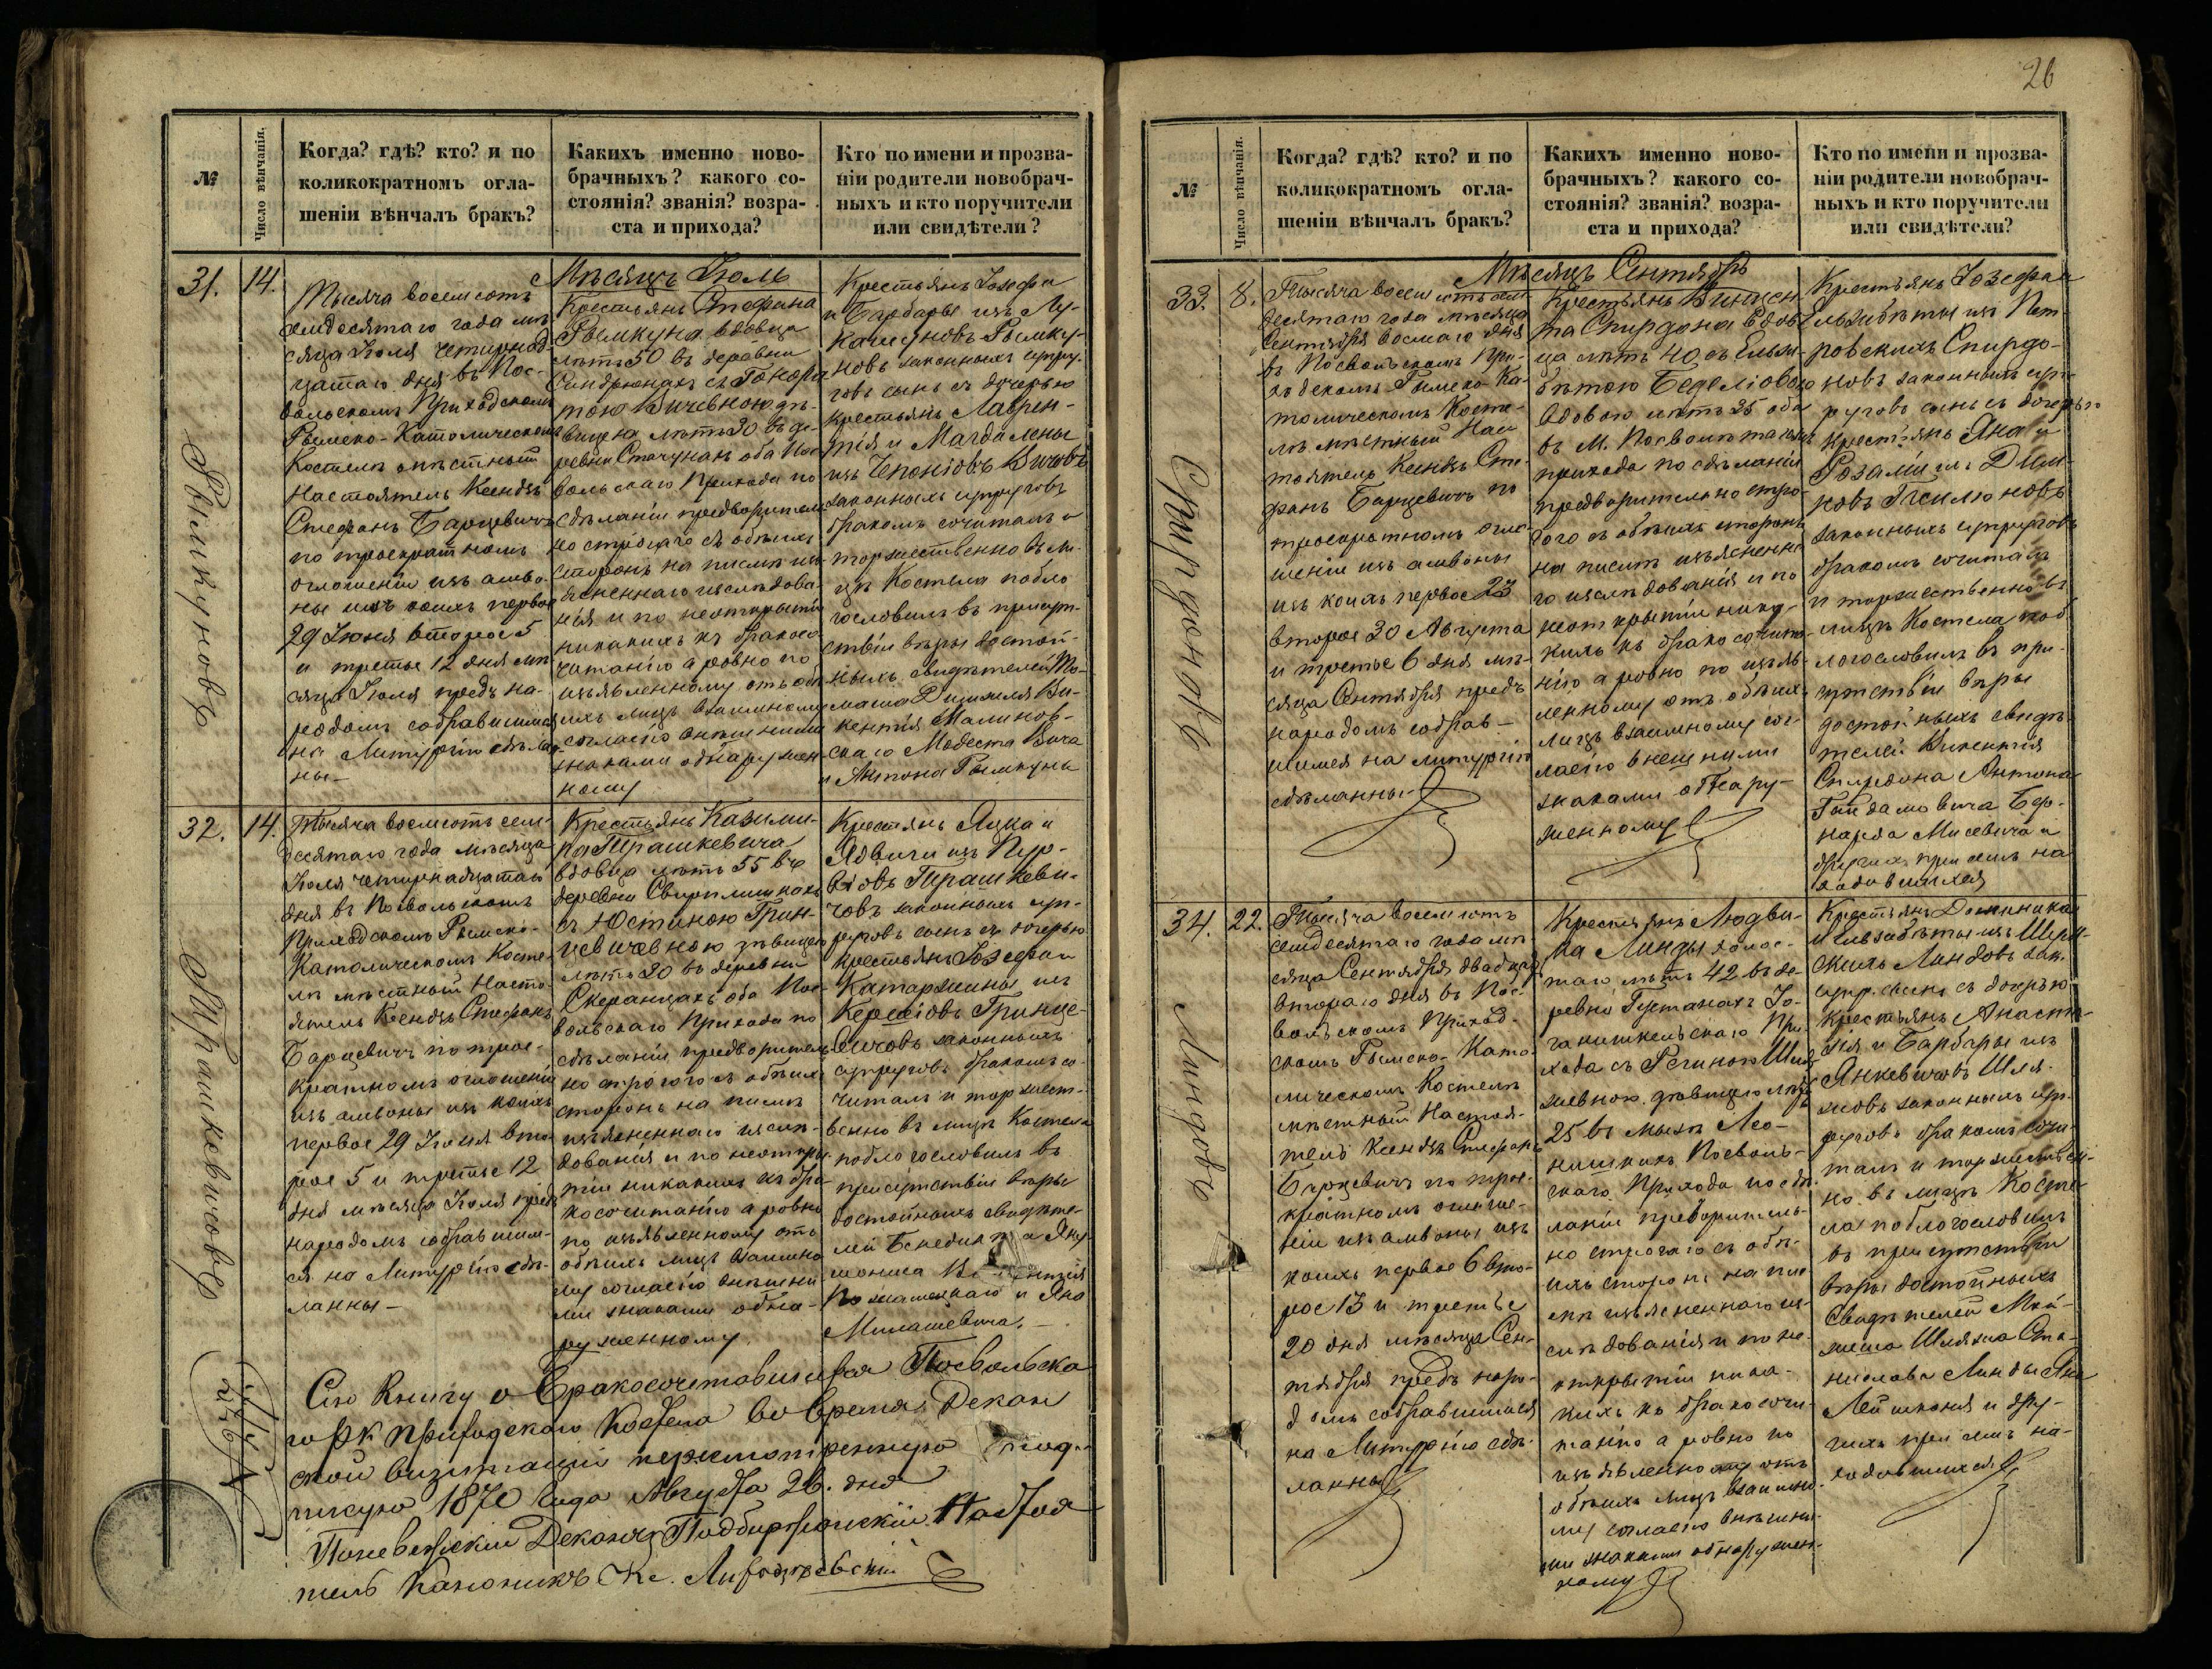 №
Число вѣнчанія.
Когда? гдѣ? кто? и по
коликократномъ огла-
шеніи вѣнчалъ бракъ?
Какихъ именно ново-
брачныхъ? какого со-
стоянія? званія? возра-
ста и прихода?
Кто по имени и прозва-
ніи родители новобрач-
ныхъ и кто поручители
или свидѣтели?
Мѣсяцъ Іюль
31.
14.
Рымкуновъ
Тысяча восемсотъ
семдесятаго года мѣ-
сяца Іюля четырнад-
цатаго дня въ Пос-
вольскомъ Приходскомъ
Римско-Католическомъ
Костелѣ мѣстный
Настоятель Ксендзъ
Стефанъ Барцевичъ
по троекратномъ
оглошеніи изъ амво-
ны изъ коихъ первое
29 Іюня второе 5
и третье 12 дня мѣ-
сяца Іюля предъ на-
родомъ собравшимся
на Литургію сдѣлан-
ны
Крестьянъ Стефана
Рымкуна вдовца
лѣтъ 50 въ деревни
Синдрюнахъ съ Гонора-
тою Вичевною дѣ-
вицею лѣтъ 30 въ де-
ревни Стачунахъ оба Пос-
вольскаго Прихода по
сдѣланіи предворитель-
но строгаго съ обѣихъ
сторонъ на письмѣ изъ-
ясненнаго изслѣдова-
нія и по неоткрытіи
никакихъ къ бракосо-
читанію а ровно по
изъявленному отъ обѣ-
ихъ лицъ взаимному
согласію внешними
знаками обнаружен-
ному
Крестьянъ Іозефа
и Барбары изъ Лу-
кашуновъ Рымку-
новъ законныхъ супру-
говъ сынъ съ дочерью
крестьянъ Лаврен-
тія и Магдалены
изъ Чепоніовъ Вичовъ
законныхъ супруговъ
бракомъ сочиталъ и
торжественно въ ли-
цѣ Костела побло-
гословилъ въ присут-
ствіи вѣры достой-
ныхъ свидѣтелей То-
маша Ви-
кентія Малинов-
скаго Модеста Вича
и Антона Рымкуны
32.
14.
Трашкевичовъ
Тысяча восемсотъ сем-
десятаго года мѣсяца
Іюля четырнадцатаго
дня въ Посвольскомъ
Приходскомъ Римско-
Католическомъ Косте-
лѣ мѣстный Насто-
ятель Ксендзъ Стефанъ
Барцевичъ по трое-
кратномъ оглошеніи
изъ амвоны изъ коихъ
первое 29 Іюня вто-
рое 5 и третье 12
дня мѣсяца Іюля предъ
народомъ собравшим-
ся на Литургію сдѣ-
ланны
Крестьянъ Казими-
ра Трашкевича
вдовца лѣтъ 55 въ
деревни Свирплишкахъ
съ Юстиною Грин-
цевичевною дѣвицею
лѣтъ 30 въ деревни
Скеранцахъ оба Пос-
вольскаго Прихода по
сдѣланіи предворитель-
но строгого съ обѣихъ
сторонъ на письмѣ
изъясненнаго изслѣ-
дованія и по неоткры-
тіи никакихъ къ бра-
косочитанію а ровно
по изъявленному отъ
обѣихъ лицъ взаимно-
му согласію внешни-
ми знаками обна-
руженному.
Крестьянъ Яцка и
Ядвиги изъ Пур-
віовъ Трашкеви-
човъ законныхъ суп-
руговъ сынъ съ дочерью
крестьянъ Іозефа и
Катаржины изъ
Кересіовъ Гринце-
вичовъ законныхъ
супруговъ бракомъ со-
читалъ и торжест-
венно въ лицѣ Костела
поблогословилъ въ
присутствіи вѣры
достойныхъ свидѣте-
лей Бенедикта Яну-
шониса
и Яна
Милашевича.
Сію Книгу о Бракосочетавшихся Посвольска-
го РК Приходскаго Костела во время Декан-
ской визитаціи пересмотренную подпи-
писую 1870 года Августа 26. дня
Поневежскій Деканъ Подбиржанскій Настоя-
тель Каноникъ Кс.
26
№
Число вѣнчанія.
Когда? гдѣ? кто? и по
коликократномъ огла-
шеніи вѣнчалъ бракъ?
Какихъ именно ново-
брачныхъ? какого со-
стоянія? званія? возра-
ста и прихода?
Кто по имени и прозва-
ніи родители новобрач-
ныхъ и кто поручители
или свидѣтели?
Мѣсяцъ Сентябрь
33.
8.
Спирдоновъ
Тысяча восемсотъ сем-
десятаго года мѣсяца
Сентября восмаго дня
въ Посвольскомъ При-
ходскомъ Римско-Ка-
толическомъ Косте-
лѣ мѣстный Нас-
тоятель Ксендзъ Сте-
фанъ Барцевичъ по
троекратномъ огло-
шеніи изъ амвоны
изъ коихъ первое 23
второе 30 Августа
и третье 6 дня мѣ-
сяца Сентября предъ
народомъ собрав-
шимся на литургію
сдѣланны
Крестьянъ Винцен-
та Спирдона вдов-
ца лѣтъ 40 съ Ельзи-
бѣтою Беделіовою
вдовою лѣтъ 35 оба
въ М. Посволѣ такъ
прихода по сдѣланіи
предворительно стро-
гого съ обѣихъ сторонъ
на письмѣ изъясненна-
го изслѣдованія и по
неоткрытіи ника-
кихъ къ бракосочита-
нію а ровно по изъяв-
ленному отъ обѣихъ
лицъ взаимному сог-
ласію внешними
знаками обнару-
женному
Крестьянъ Іозефа и
Ельзибѣты изъ Пет-
ровскихъ Спирдо-
новъ законныхъ суп-
руговъ сынъ съ дочерью
крестьянъ Яна и
Розаліи изъ
законныхъ супруговъ
бракомъ сочиталъ
и торжественно въ
лицѣ Костела поб-
логословилъ въ при-
сутствіи вѣры
достойныхъ свидѣ-
телей Викентія
Спирдона Антона
Гайдамовича Бер-
нарда Мисевича и
другихъ при семъ на
ходившихся
34.
22.
Линдовъ
Тысяча восемсотъ
семдесятаго года мѣ-
сяца Сентября двадцать
втораго дня въ Пос-
вольскомъ Приход-
скомъ Римско-Като-
лическомъ Костелѣ
мѣстный Настоя-
тель Ксендзъ Стефанъ
Барцевичъ по трое-
кратномъ оглоше-
ніи изъ амвоны изъ
коихъ первое 6 вто-
рое 13 и третье
20 дня мѣсяца Сен-
тября предъ наро-
домъ собравшимся
на Литургію сдѣ-
ланны
Крестьянъ Людви-
ка Линды холос-
таго лѣтъ 42 въ де-
ревни Густанахъ Іо-
ганишкельскаго При-
хода съ Региною Шля-
жевною дѣвицею лѣтъ
25 въ мызѣ Лео-
нишкахъ Посволь-
скаго Прихода по сдѣ-
ланіи предворитель-
но строгаго съ обѣ-
ихъ сторонъ на пись-
мѣ изъясненнаго из-
слѣдованія и по не-
открытіи ника-
кихъ къ бракосочи-
танію а ровно по
изъявленному отъ
обѣихъ лицъ взаимно-
му согласію внѣшни-
ми знаками обнаружен-
ному
Крестьянъ Доминика
и Ельзабѣты изъ
Линдовъ зак.
супр. сынъ съ дочерью
крестьянъ Анаста-
зія и Барбары изъ
Янкевичовъ Шля-
жовъ законныхъ суп-
руговъ бракомъ сочи-
талъ и торжествен-
но въ лицѣ Косте-
ла поблогословилъ
въ присутствіи
вѣры достойныхъ
Свидѣтелей Мой-
жеша Шляжа Ста-
нислава Линды Яна
и дру-
гихъ при семъ на-
ходившихся